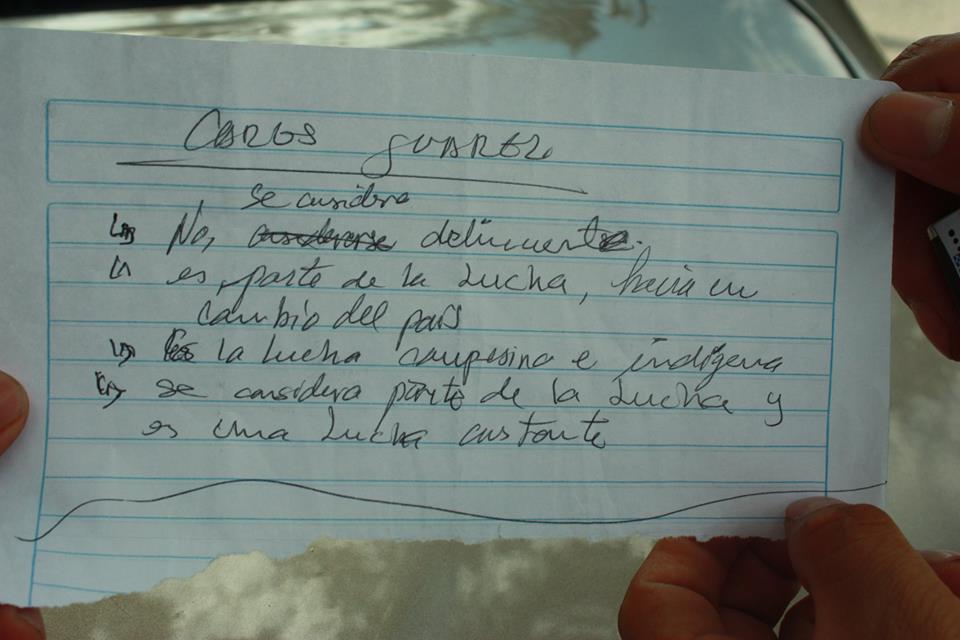 CARLOS JUAREZ
se considera
No, considerarse delincuente.
es parte de la Lucha, hacia un
cambio del país
La lucha campesina e indígena
se considera parte de la Lucha y
es una Lucha constante